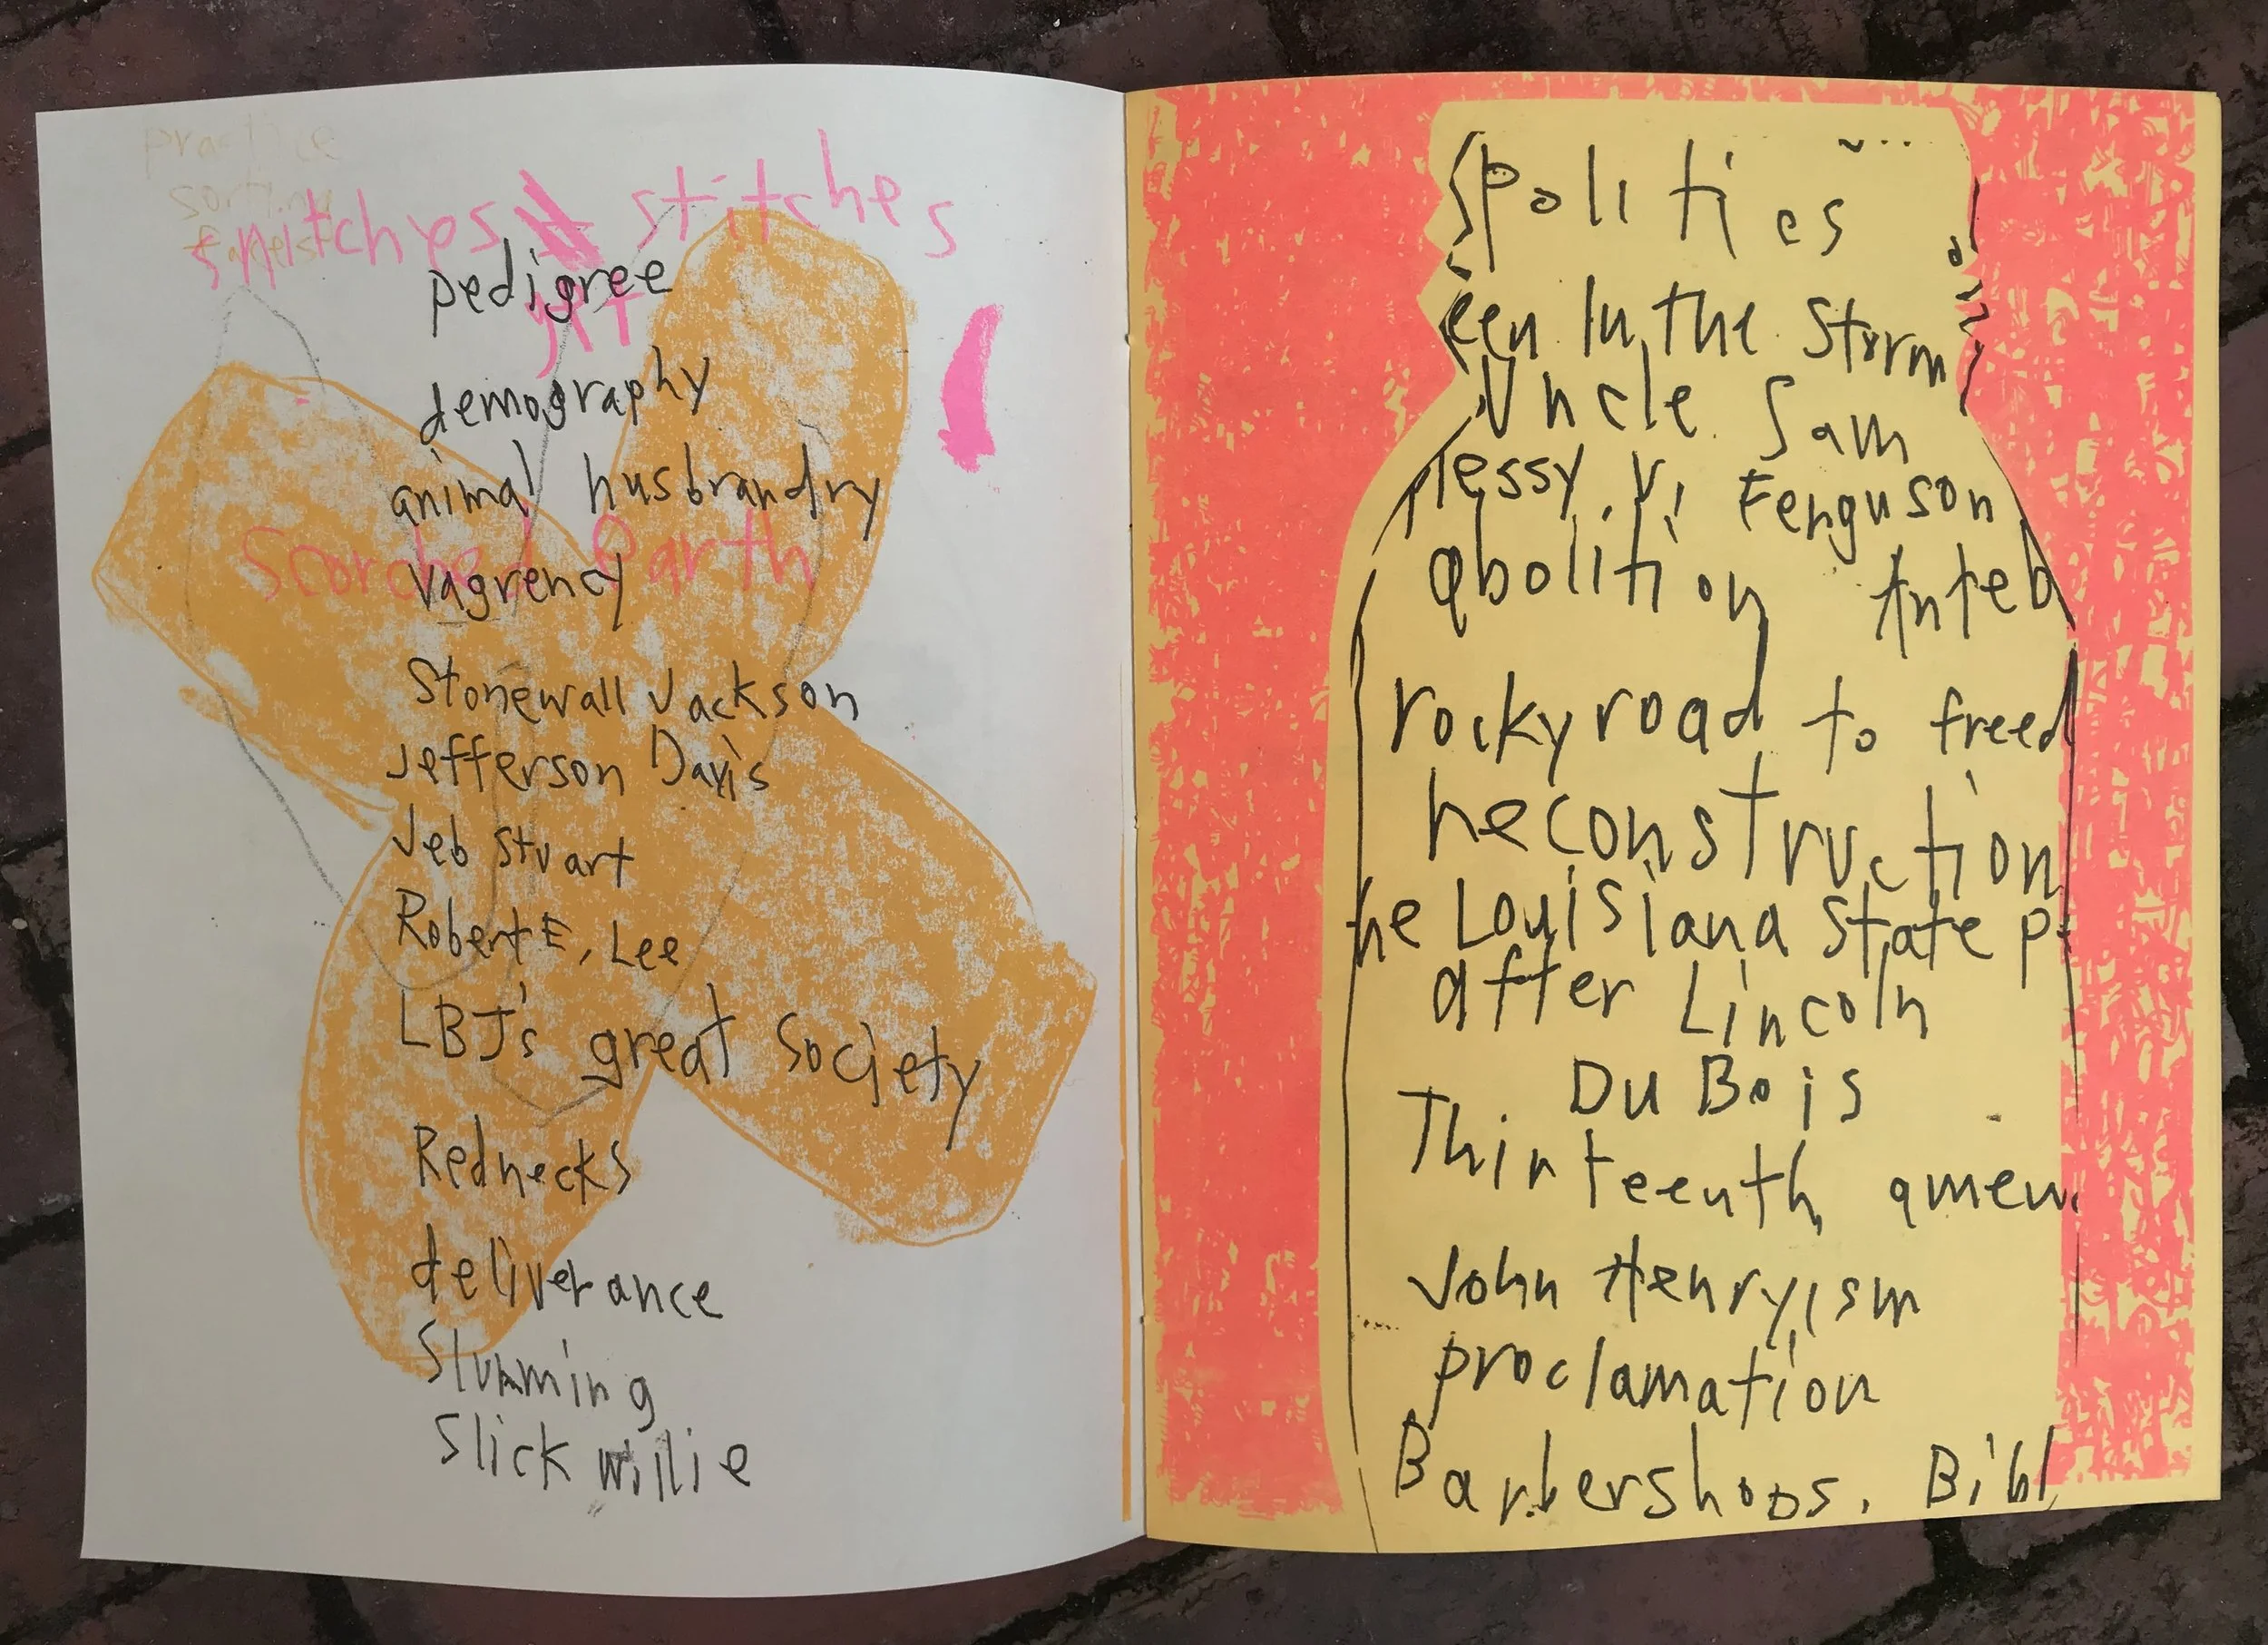 practice
sorting
snitches stitches
pedigree
ART
demography
animal husbrandry
Scorched Earth
vagrency
Stonewall Jackson
Jefferson Davis
Jeb Stuart
Robert E. Lee
LBJ's great Society
Rednecks
deliverance
Slumming
Slick Willie
Spolities
een In the Storm
Uncle Sam
lessy v. Ferguson
abolition Anteb
rocky road to freed
Reconstruction
he Louisiana State P
after Lincoln
Du Bois
Thirteenth amen
John Henryism
proclamation
Barbershops. Bibl